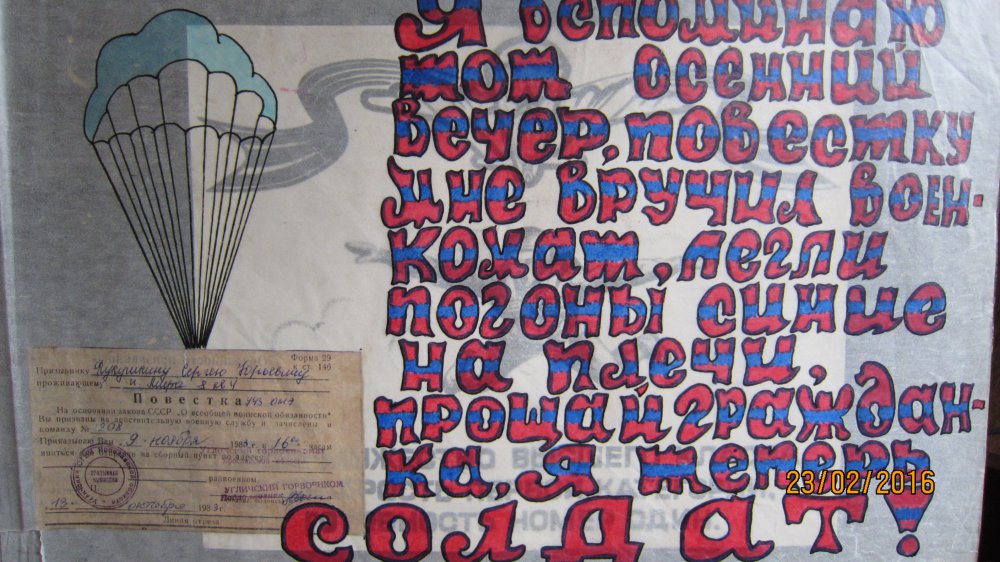 Я вспоминаю
тот осенний
вечер, повестку
мне вручил воен-
комат, легли
погоны синие
на плечи,
прощай граждан-
ка, я теперь
солдат!
Форма 29
Призывнику Кукушкину Сергею
проживающему
Повестка
На основании закона СССР „О всеобщей воинской обязанности"
Вы призваны на действительную военную службу и зачислены в
команду № 208
Приказываю Вам 9 ноября 1983 г. к 16 часам
на сборный пункт
райвоенком
УГЛИЧСКИЙ ГОРВОЕНКОМ
13 октября 1983 г.
Линия отреза
23/02/2016